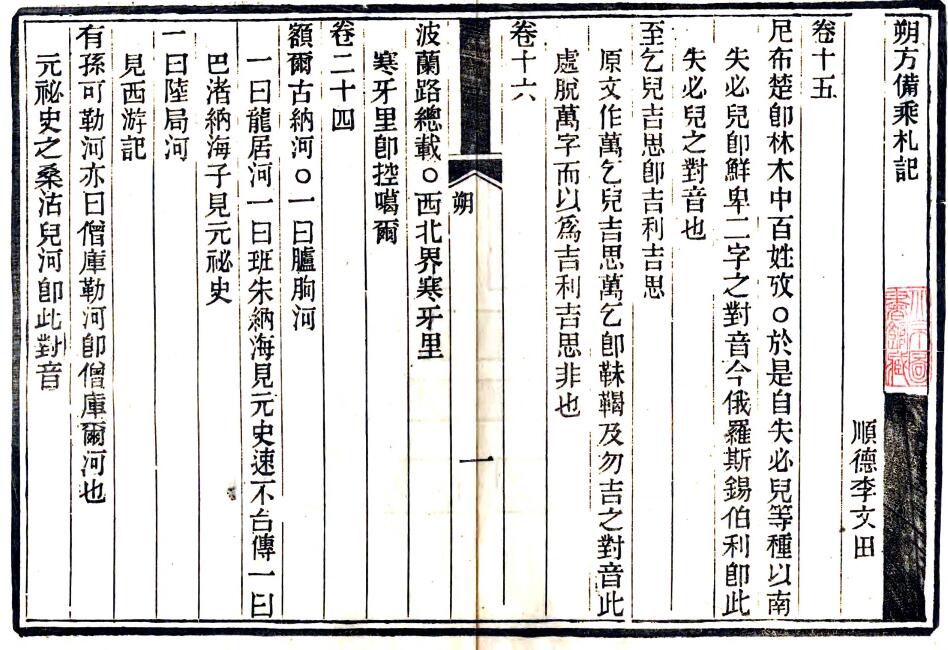 朔方備乘札記
順德李文田
卷十五
尼布楚卽林木中百姓攷○於是自失必兒等種以南
失必兒卽鮮卑二字之對音今俄羅斯錫伯利卽此
失必兒之對音也
至乞兒吉思卽吉利吉思
原文作萬乞兒吉思萬乞卽靺鞨及勿吉之對音此
處脫萬字而以爲吉利吉思非也
卷十六
朔
一
波蘭路總載○西北界寒牙里
寒牙里卽控噶爾
卷二十四
額爾古納河○一曰臚朐河
一曰龍居河一曰班朱納海見元史速不台傳一曰
巴渚納海子見元祕史
一曰陸局河
見西游記
有孫可勒河亦曰僧庫勒河卽僧庫爾河也
元祕史之桑沽兒河卽此對音